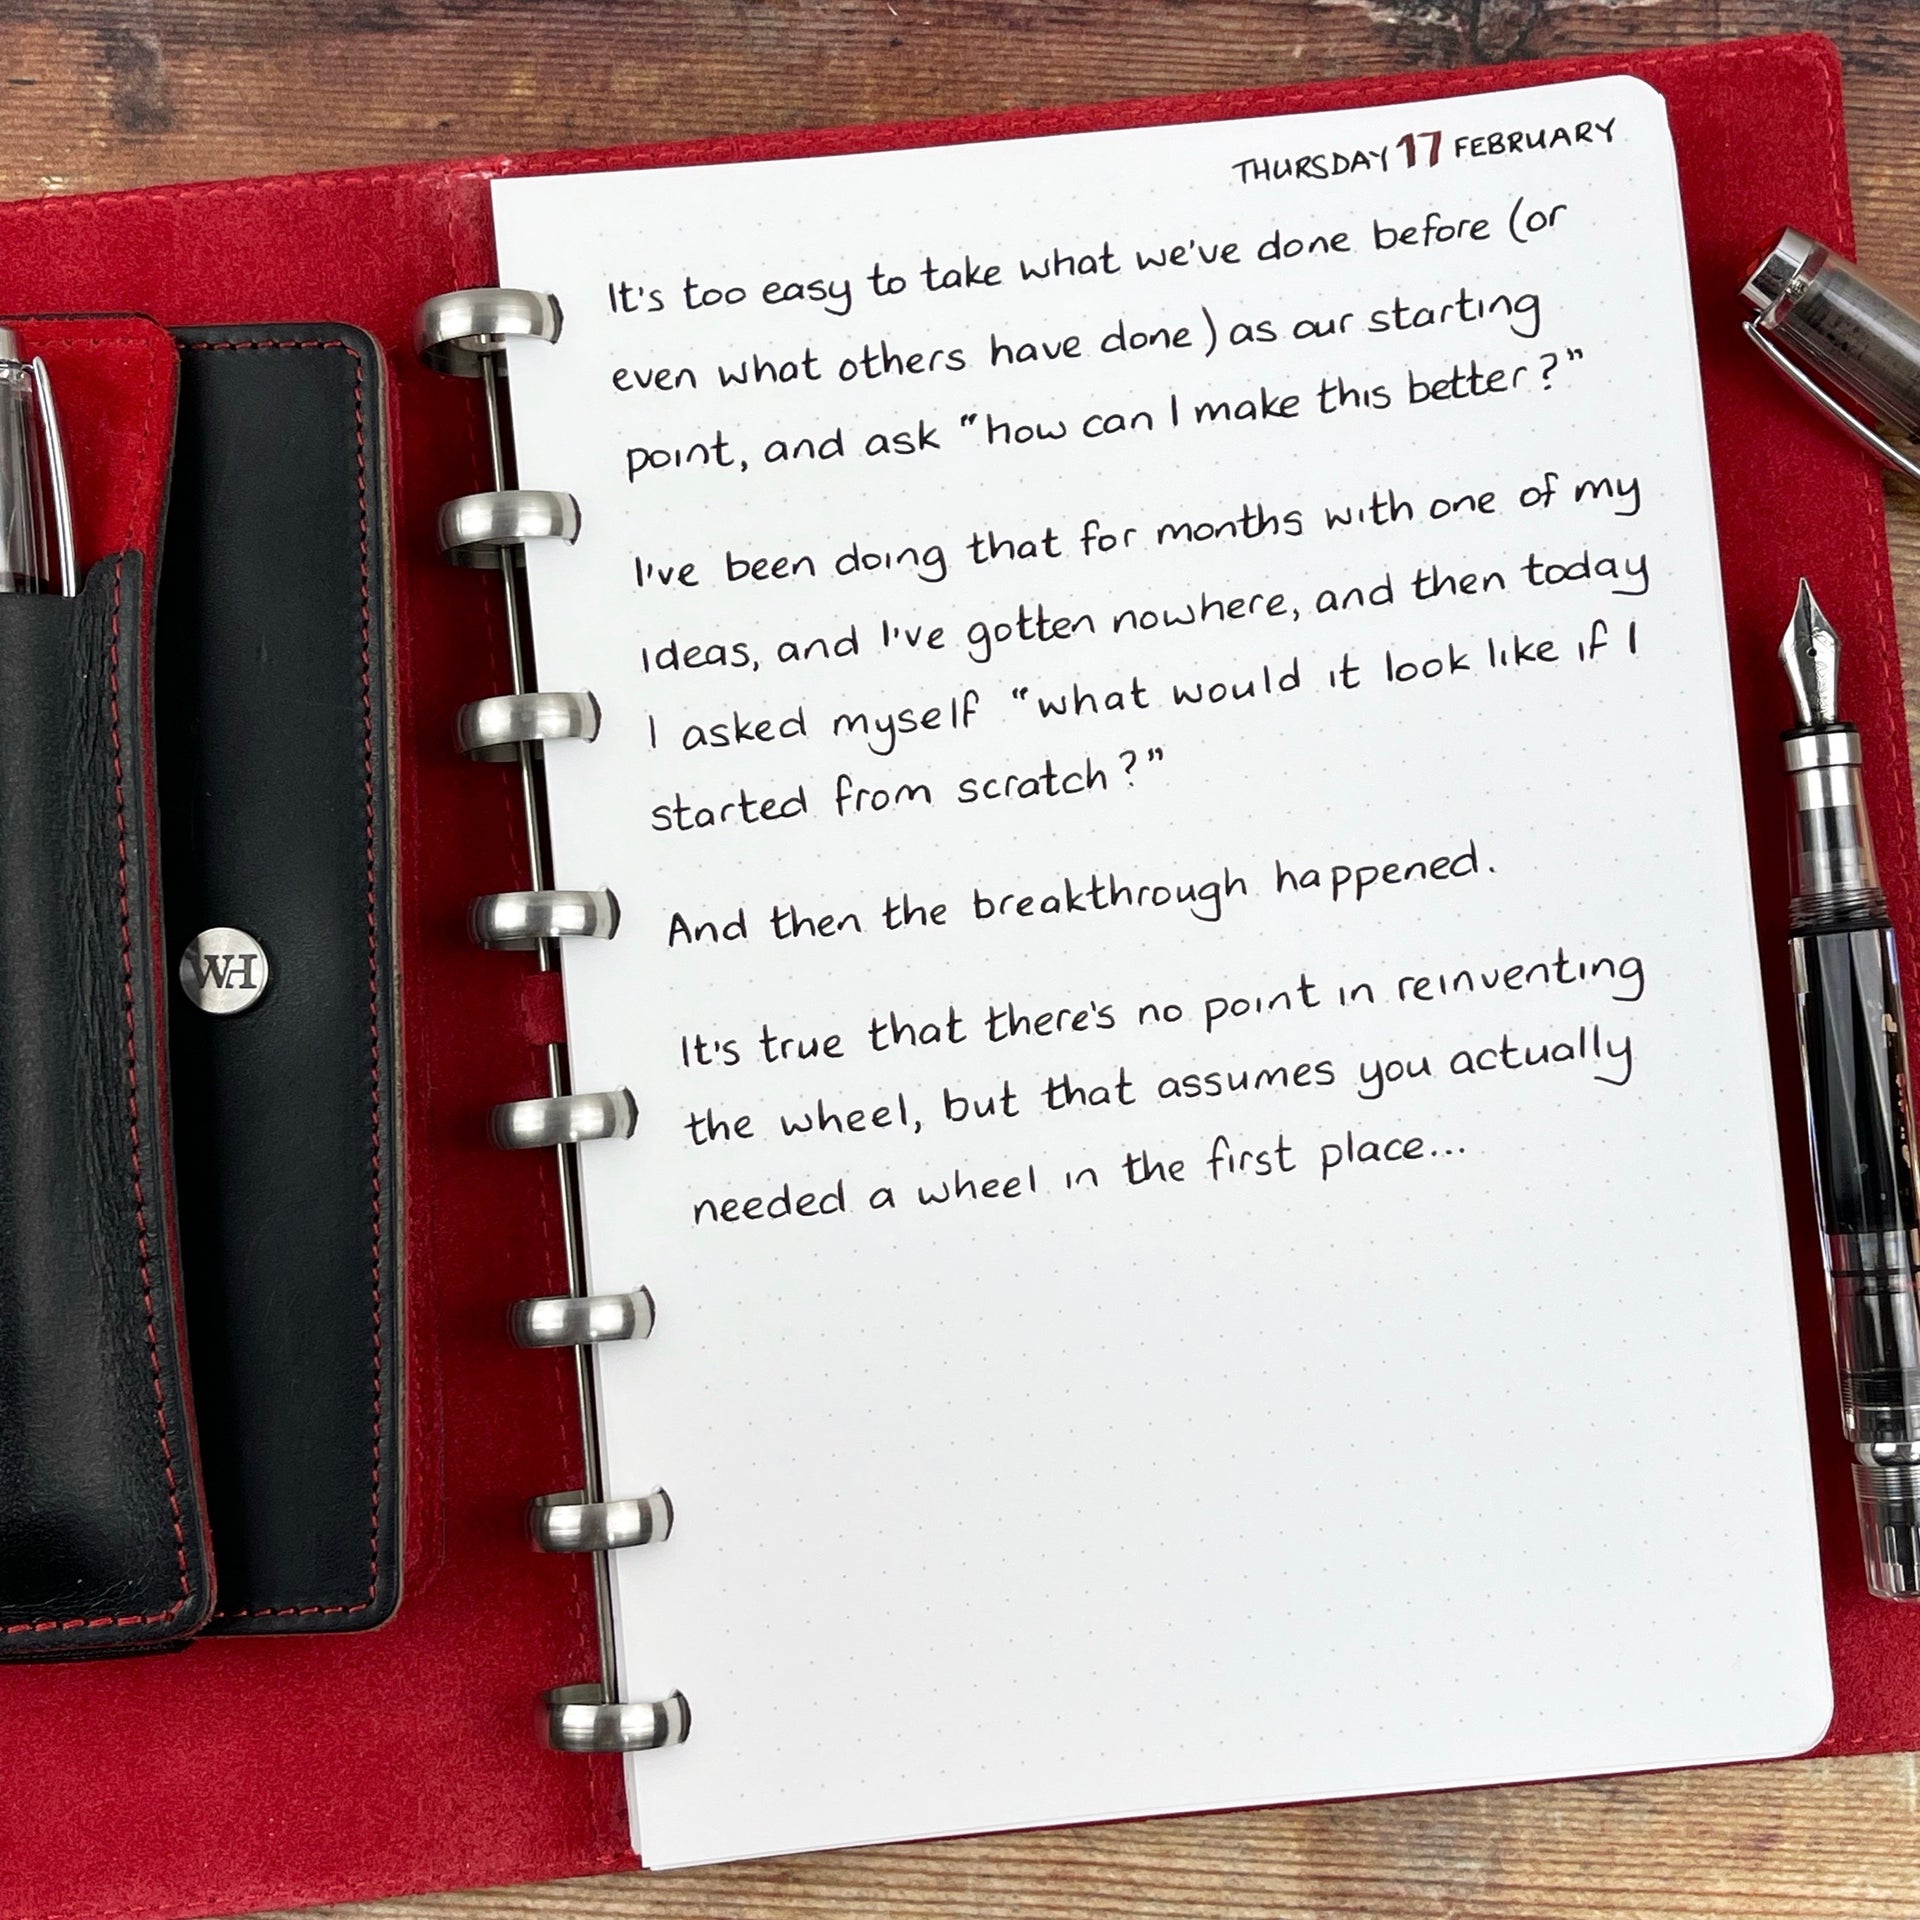 THURSDAY 17 FEBRUARY
It's too easy to take what we've done before (or
even what others have done) as our starting
point, and ask "how can I make this better?"
I've been doing that for months with one of my
ideas, and I've gotten nowhere, and then today
I asked myself "what would it look like if I
started from scratch?"
And then the breakthrough happened.
It's true that there's no point in reinventing
the wheel, but that assumes you actually
needed a wheel in the first place...
WH